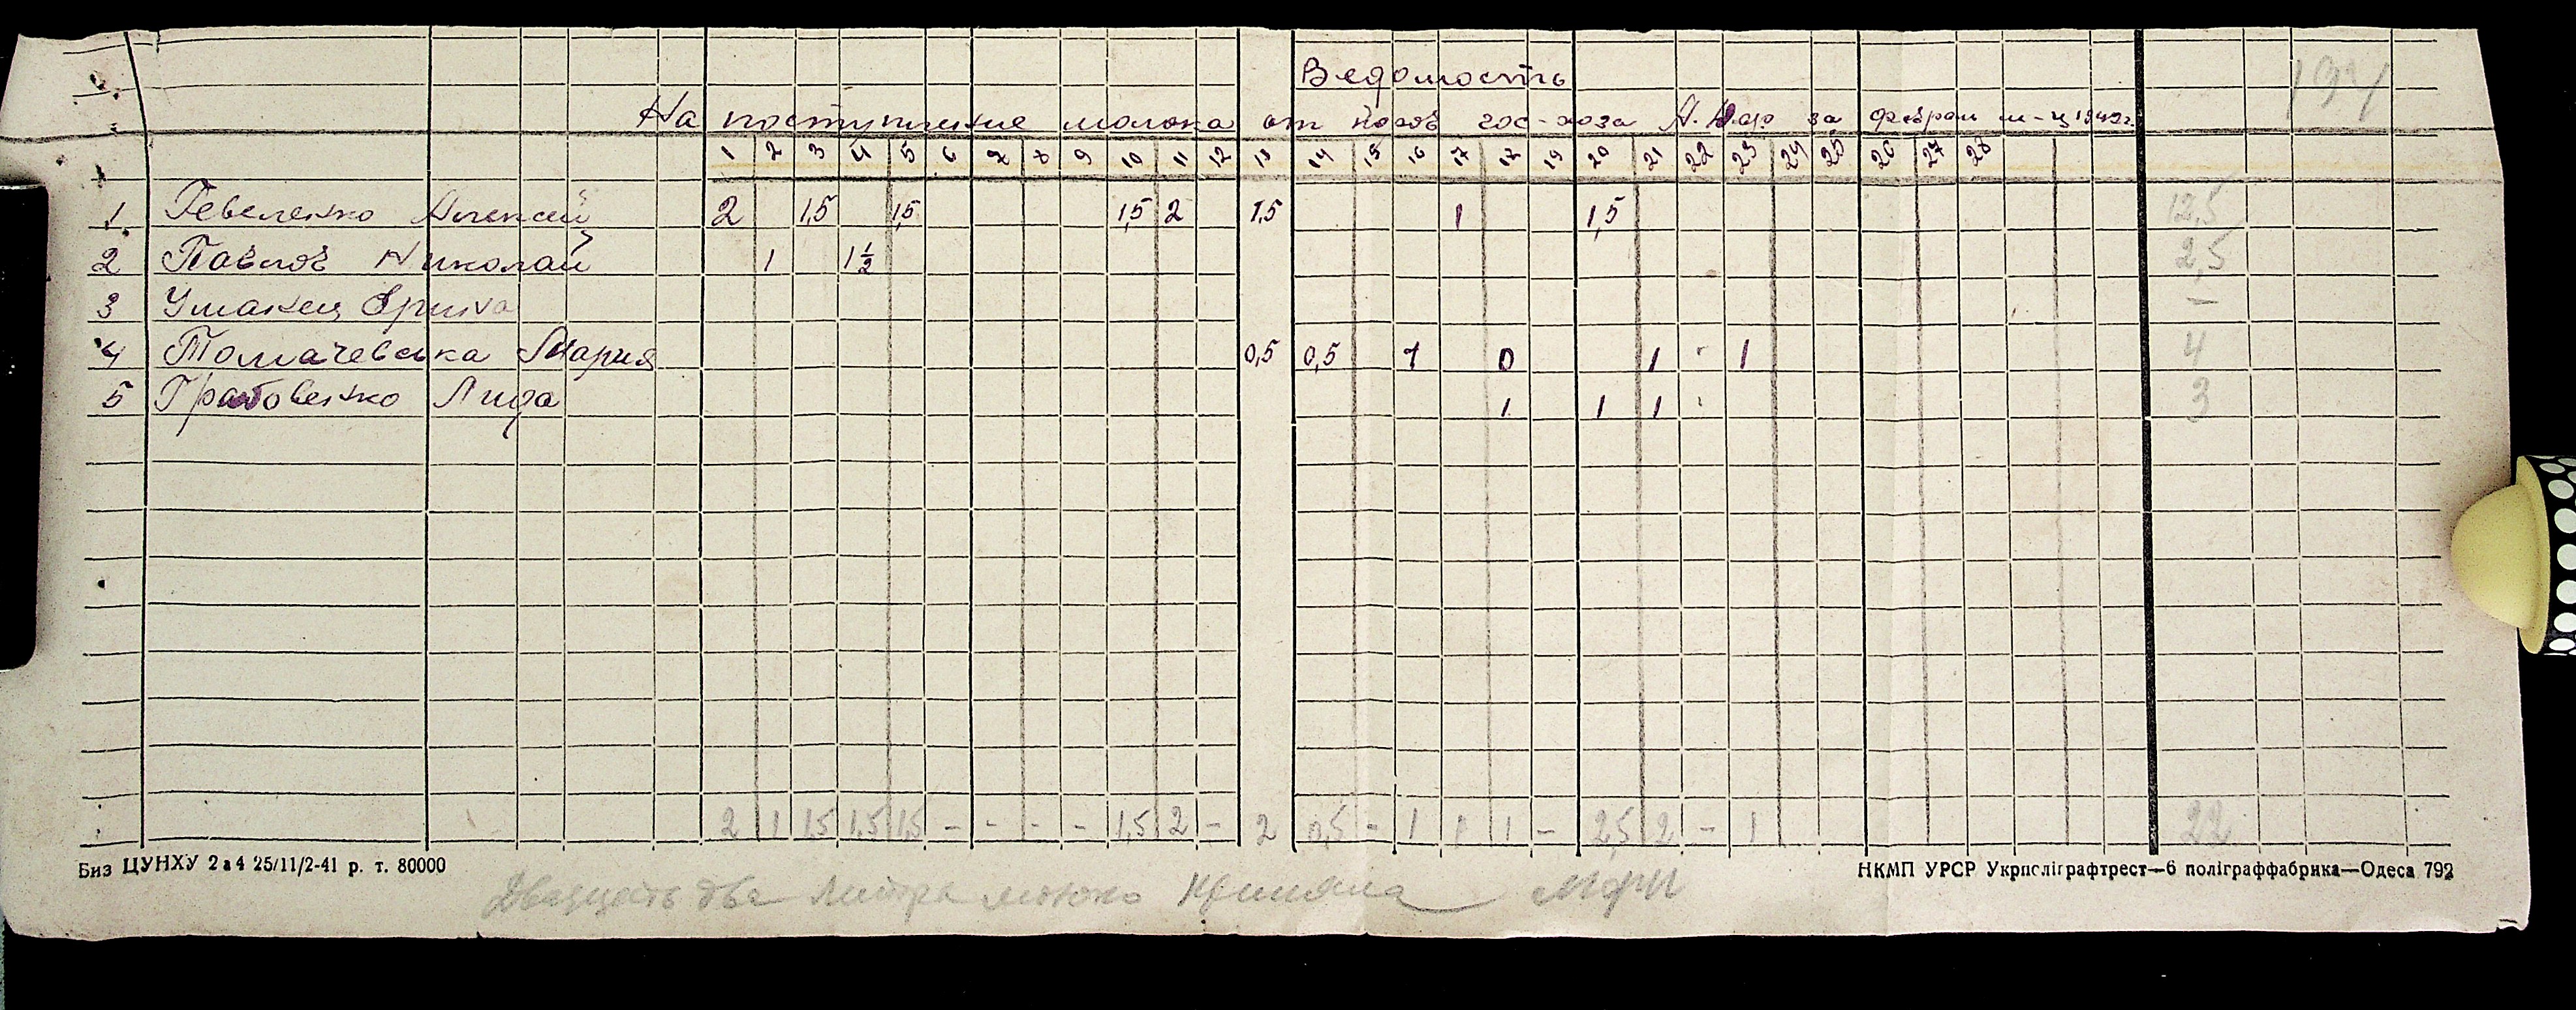 Ведомость
На поступление молока от коров гос-хоза за феврал м-ц 1942 г.
1 2 3 4 5 6 7 8 9 10 11 12 13 14 15 16 17 17 19 20 21 22 23 24 25 26 27 28
1 Гевеленко Алексей 2 1,5 1,5 1,5 2 1,5 1 1,5 12,5
2 Павлов Николай 1 1½ 2,5
3 –
4 Толмачевська Мария 0,5 0,5 1 0 1 1 4
5 Грабовенко Лида 1 1 1 3
2 1 1,5 1,5 1,5 – – – – 1,5 2 – 2 0,5 – 1 1 1 – 2,5 2 – 1 22
Биз ЦУНХУ 2а4 25/11/2-41 р. т. 80000
НКМП УРСР Укрполіграфтрест—6 поліграффабрика—Одеса 792
Двадцать два литра молоко приняла